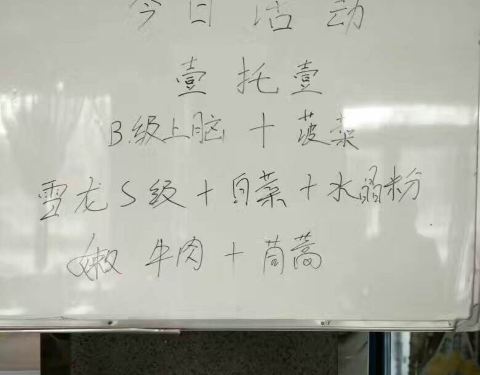 今日活动
壹托壹
B.级上脑+菠菜
雪龙S级+白菜+水晶粉
嫩牛肉+茼蒿